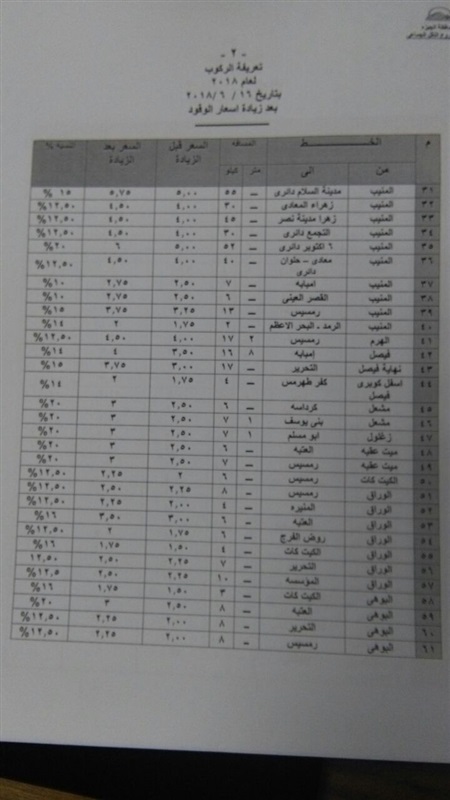 محافظة الجيزة
- ٢ -
تعريفة الركوب
لعام ٢٠١٨
بتاريخ ١٦ / ٦ /٢٠١٨
بعد زيادة اسعار الوقود
م الخط المسافه السعر قبل الزيادة السعر بعد الزيادة النسبه %
من الى متر كيلو
٣١ المنيب مدينة السلام دائرى ــ ٥٥ ٥,٠٠ ٥,٧٥ ١٥ %
٣٢ المنيب زهراء المعادى ــ ٣٠ ٤,٠٠ ٤,٥٠ ١٢,٥٠%
٣٣ المنيب زهرا مدينة نصر ــ ٤٥ ٤,٠٠ ٤,٥٠ ١٢,٥٠%
٣٤ المنيب التجمع دائرى ــ ٣٠ ٤,٠٠ ٤,٥٠ ١٢,٥٠%
٣٥ المنيب ٦ اكتوبر دائرى ــ ٥٢ ٥,٠٠ ٦ ٢٠%
٣٦ المنيب معادى – حلوان دائرى ــ ٤٠ ٤,٠٠ ٤,٥٠ ١٢,٥٠%
٣٧ المنيب إمبابه ــ ٧ ٢,٥٠ ٢,٧٥ ١٠%
٣٨ المنيب القصر العينى ــ ٦ ٢,٥٠ ٢,٧٥ ١٠%
٣٩ المنيب رمسيس ــ ١٣ ٣,٢٥ ٣,٧٥ ١٥%
٤٠ المنيب الرمد - البحر الاعظم ــ ٢ ١,٧٥ ٢ ١٤%
٤١ الهرم رمسيس ٢ ١٧ ٤,٠٠ ٤,٥٠ ١٢,٥٠%
٤٢ فيصل إمبابه ٨ ١٦ ٣,٥٠ ٤ ١٤%
٤٣ نهاية فيصل التحرير ــ ١٧ ٣,٠٠ ٣,٧٥ ١٥%
٤٤ اسفل كوبرى فيصل كفر طهرمس ــ ٤ ١,٧٥ ٢ ١٤%
٤٥ مشعل كرداسه ــ ٦ ٢,٥٠ ٣ ٢٠%
٤٦ مشعل بنى يوسف ١ ٧ ٢,٥٠ ٣ ٢٠%
٤٧ زغلول ابو مسلم ١ ٧ ٢,٥٠ ٣ ٢٠%
٤٨ ميت عقبه العتبه ــ ٦ ٢,٥٠ ٣ ٢٠%
٤٩ ميت عقبه رمسيس ــ ٧ ٢,٥٠ ٣ ٢٠%
٥٠ الكيت كات رمسيس ــ ٦ ٢ ٢,٢٥ ١٢,٥٠%
٥١ الوراق رمسيس ــ ٨ ٢,٢٥ ٢,٥٠ ١٢,٥٠%
٥٢ الوراق المنيره ــ ٤ ٢,٠٠ ٢,٢٥ ١٢,٥٠%
٥٣ الوراق العتبه ــ ٦ ٣,٠٠ ٣,٥٠ ١٦%
٥٤ الوراق روض الفرج ــ ٦ ١,٧٥ ٢ ١٢,٥٠%
٥٥ الوراق الكيت كات ــ ٤ ١,٥٠ ١,٧٥ ١٦%
٥٦ الوراق التحرير ــ ٧ ٢,٢٥ ٢,٥٠ ١٢,٥٠
٥٧ الوراق المؤسسه ــ ١٠ ٢,٢٥ ٢,٥٠ ١٢,٥%
٥٨ البوهى الكيت كات ــ ٣ ١,٥٠ ١,٧٥ ١٦%
٥٩ البوهى العتبه ــ ٨ ٢,٥٠ ٣ ٢٠%
٦٠ البوهى التحرير ــ ٨ ٢,٠٠ ٢,٢٥ ١٢,٥٠%
٦١ البوهى رمسيس ــ ٨ ٢,٠٠ ٢,٢٥ ١٢,٥٠%